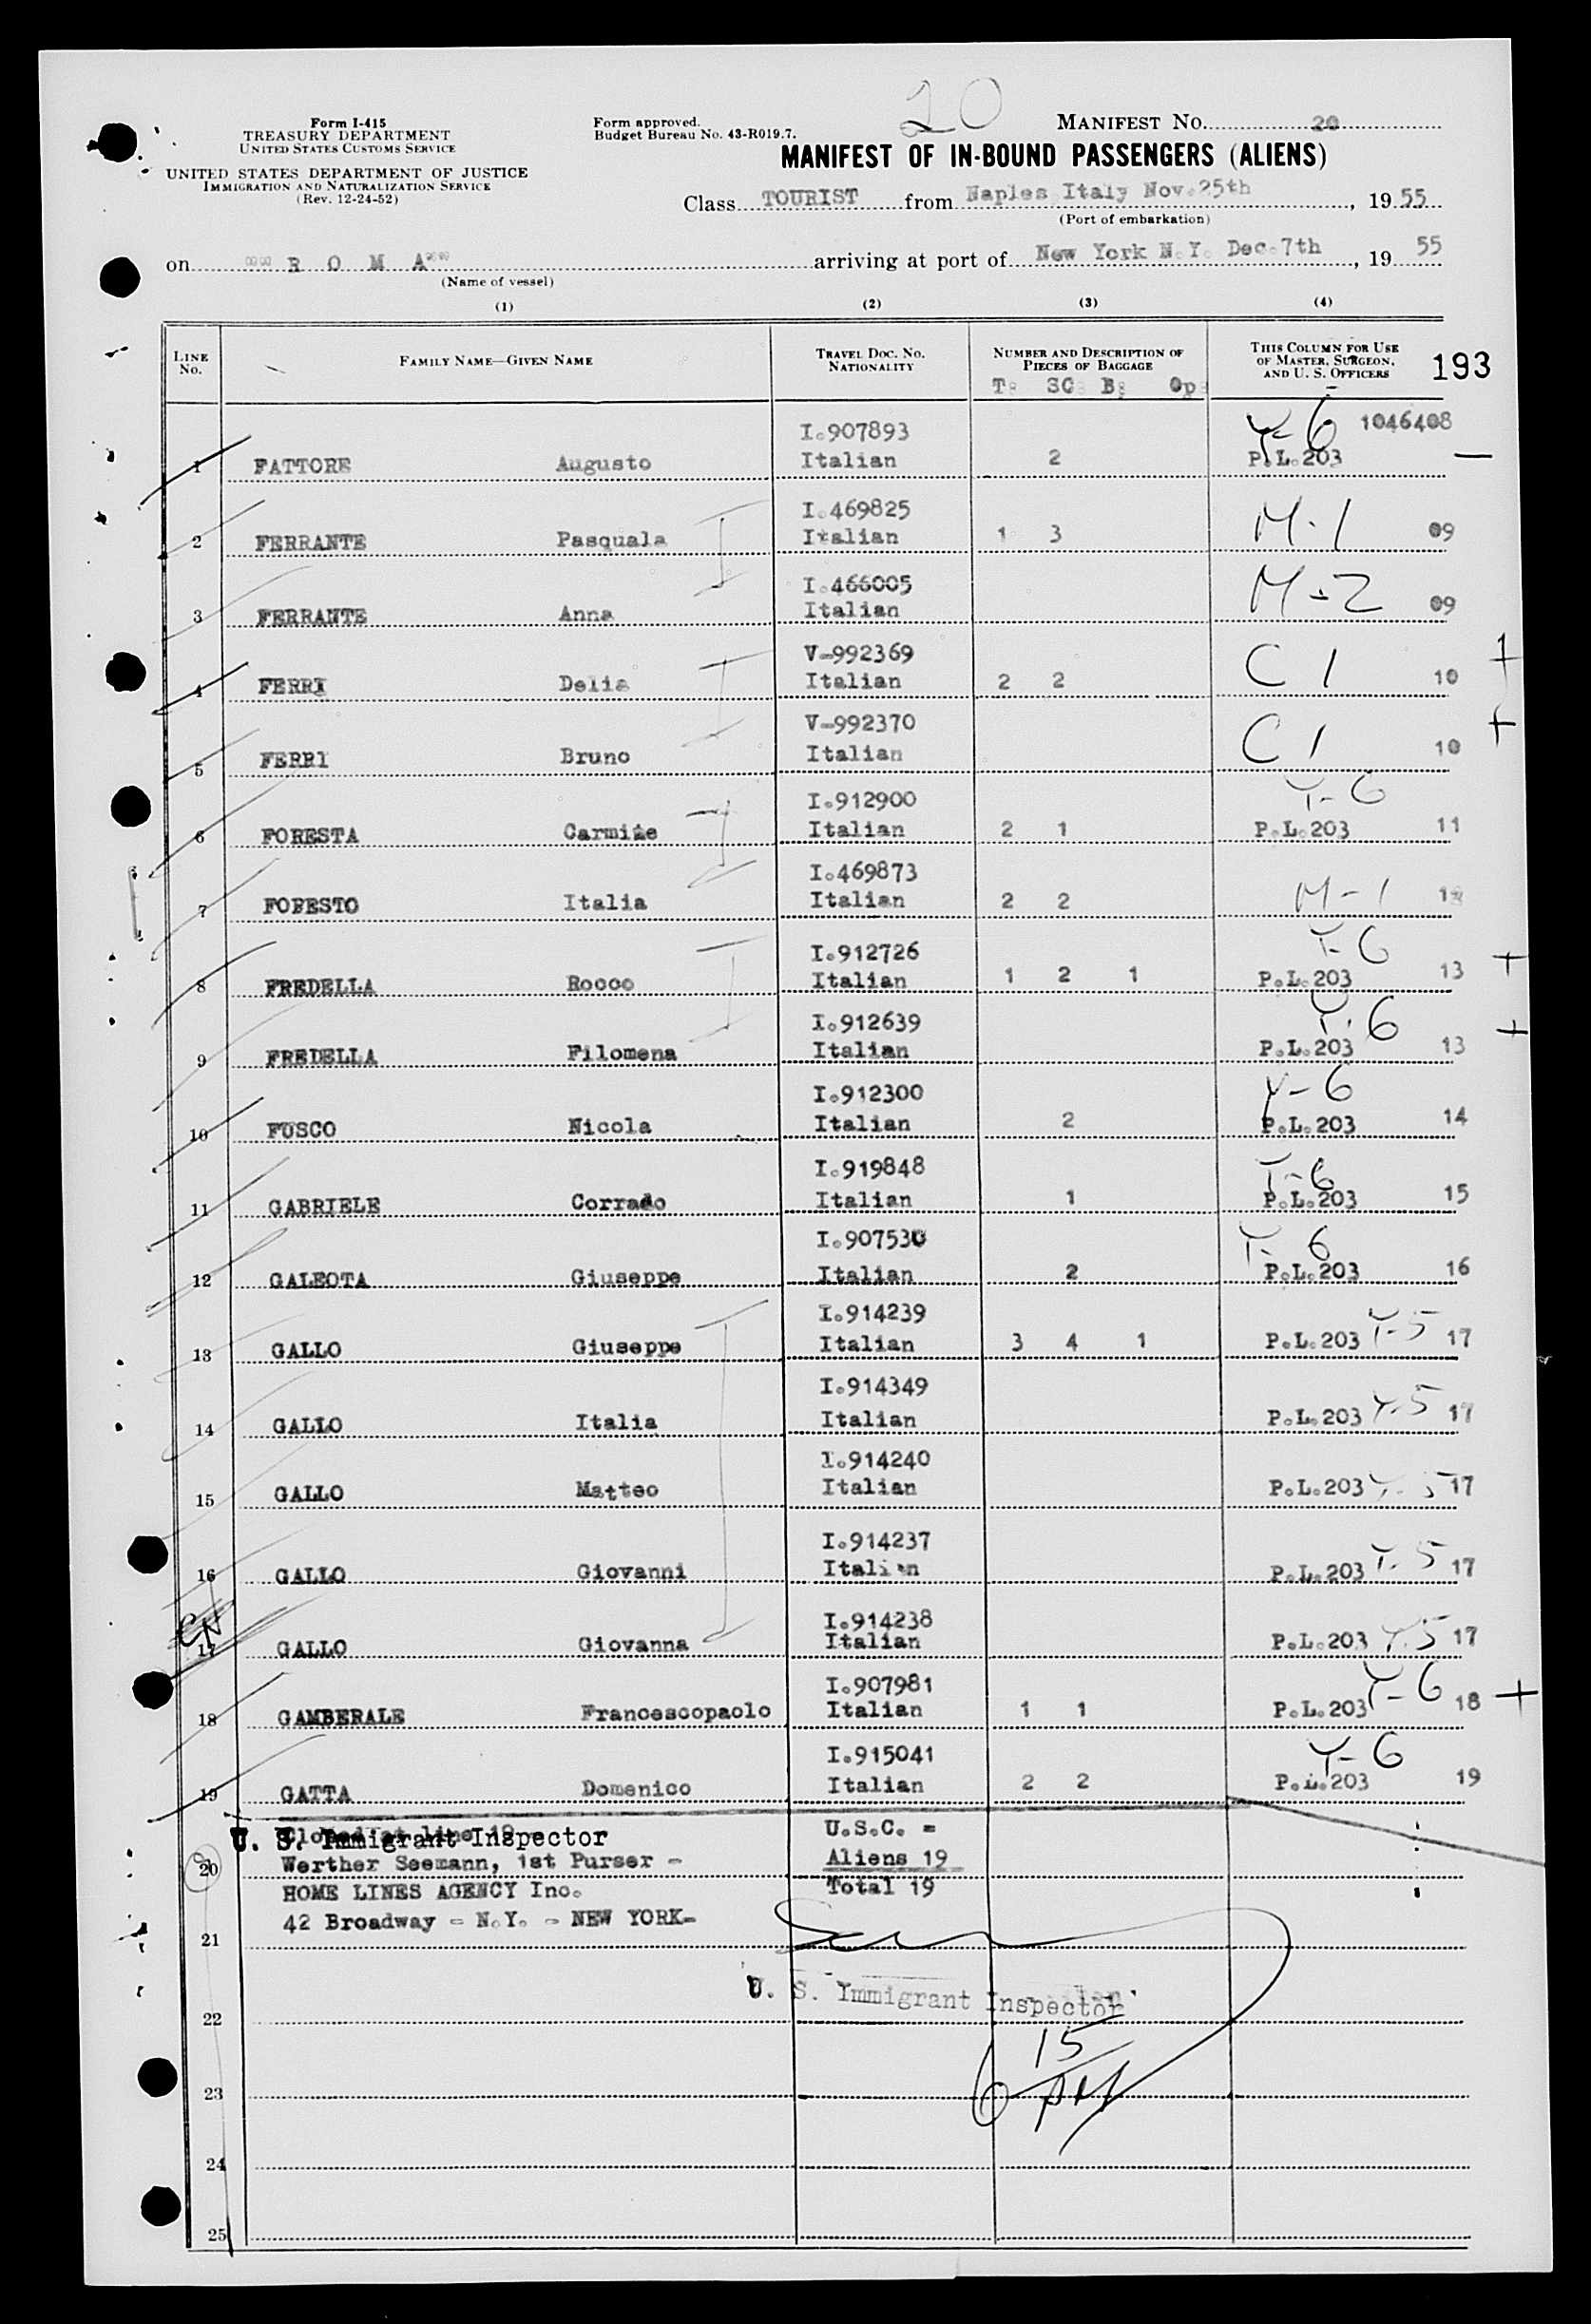 20
Form I-415
TREASURY DEPARTMENT
UNITED STATES CUSTOMS SERVICE
UNITED STATES DEPARTMENT OF JUSTICE
IMMIGRATION AND NATURALIZATION SERVICE
(Rev. 12-24-52)
Form approved.
Budget Bureau No. 43-R019.7.
MANIFEST NO. 20
MANIFEST OF IN-BOUND PASSENGERS (ALIENS)
Class TOURIST from Naples Italy Nov.25th, 19 55
(Port of embarkation)
on R O M A arriving at port of New York N.Y. Dec.7th, 19 55
(Name of vessel)
(1) (2) (3) (4)
LINE NO. FAMILY NAME—GIVEN NAME TRAVEL DOC. NO. NATIONALITY NUMBER AND DESCRIPTION OF PIECES OF BAGGAGE THIS COLUMN FOR USE OF MASTER, SURGEON, AND U. S. OFFICERS 193
T: SC: B: Op:
I.907893 Y-6 1046408
1 FATTORE Augusto Italian 2 P.L.203 —
I.469825
2 FERRANTE Pasquala Italian 1 3 M-1 09
I.466005
3 FERRANTE Anna Italian M-2 09
V-992369
4 FERRI Delia Italian 2 2 C 1 10 +
V-992370
5 FERRI Bruno Italian C 1 10 +
I.912900 Y-6
6 FORESTA Carmine Italian 2 1 P.L.203 11
I.469873
7 FORESTO Italia Italian 2 2 M-1 12
I.912726 Y-6
8 FREDELLA Rocco Italian 1 2 1 P.L.203 13 +
I.912639 Y-6
9 FREDELLA Filomena Italian P.L.203 13 +
I.912300 Y-6
10 FUSCO Nicola Italian 2 P.L.203 14
I.919848 Y-6
11 GABRIELE Corrado Italian 1 P.L.203 15
I.907530 Y-6
12 GALEOTA Giuseppe Italian 2 P.L.203 16
I.914239
13 GALLO Giuseppe Italian 3 4 1 P.L.203 Y-5 17
I.914349
14 GALLO Italia Italian P.L.203 Y-5 17
I.914240
15 GALLO Matteo Italian P.L.203 Y-5 17
I.914237
16 GALLO Giovanni Italian P.L.203 Y-5 17
I.914238
17 GALLO Giovanna Italian P.L.203 Y-5 17
I.907981
18 GAMBERALE Francescopaolo Italian 1 1 P.L.203 Y-6 18 +
I.915041 Y-6
19 GATTA Domenico Italian 2 2 P.L.203 19
Closed at line 19 U.S.C. =
U. S. Immigrant Inspector
20 Werther Seemann, 1st Purser - Aliens 19
HOME LINES AGENCY Inc. Total 19
42 Broadway - N.Y. - NEW YORK-
21
U. S. Immigrant Inspector
22
15
23 6
24
25